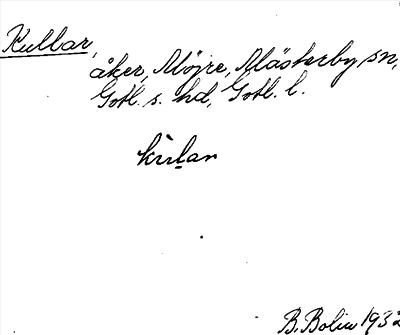 Kullar,
åker, Möjre, Mästerby sn,
Gotl. s. hd, Gotl. l.
B. Bolin 1932